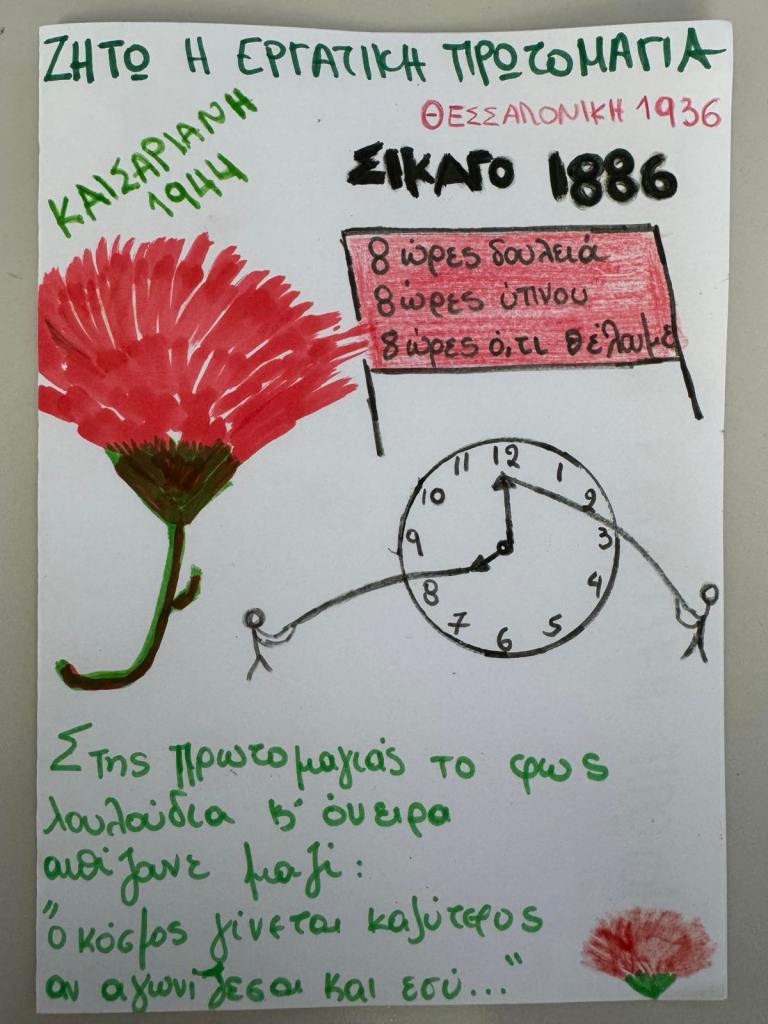 ΖΗΤΩ Η ΕΡΓΑΤΙΚΗ ΠΡΩΤΟΜΑΓΙΑ
ΘΕΣΣΑΛΟΝΙΚΗ 1936
ΚΑΙΣΑΡΙΑΝΗ
1944
ΣΙΚΑΓΟ 1886
8 ώρες δουλειά
8 ώρες ύπνου
8 ώρες ό,τι θέλουμε
12
1
2
3
4
5
6
7
8
9
10
11
Στης πρωτομαγιάς το φως
λουλούδια κ' όνειρα
ανθίζανε μαζί:
"ο κόσμος γίνεται καλύτερος
αν αγωνίζεσαι και εσύ..."